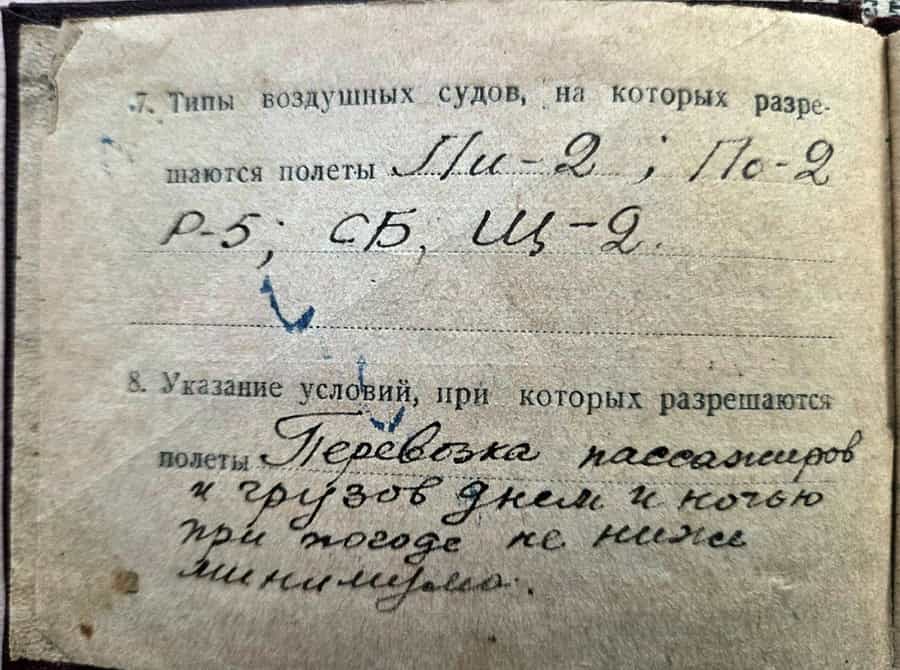 7. Типы воздушных судов, на которых разре-
шаются полеты Ли-2; По-2
Р-5; СБ, Щ-2.
8. Указание условий, при которых разрешаются
полеты Перевозка пассажиров
и грузов днем и ночью
при погоде не ниже
минимума.